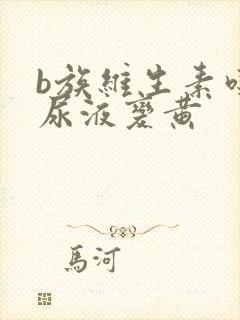 b族維生素
尿液變黃
馬河